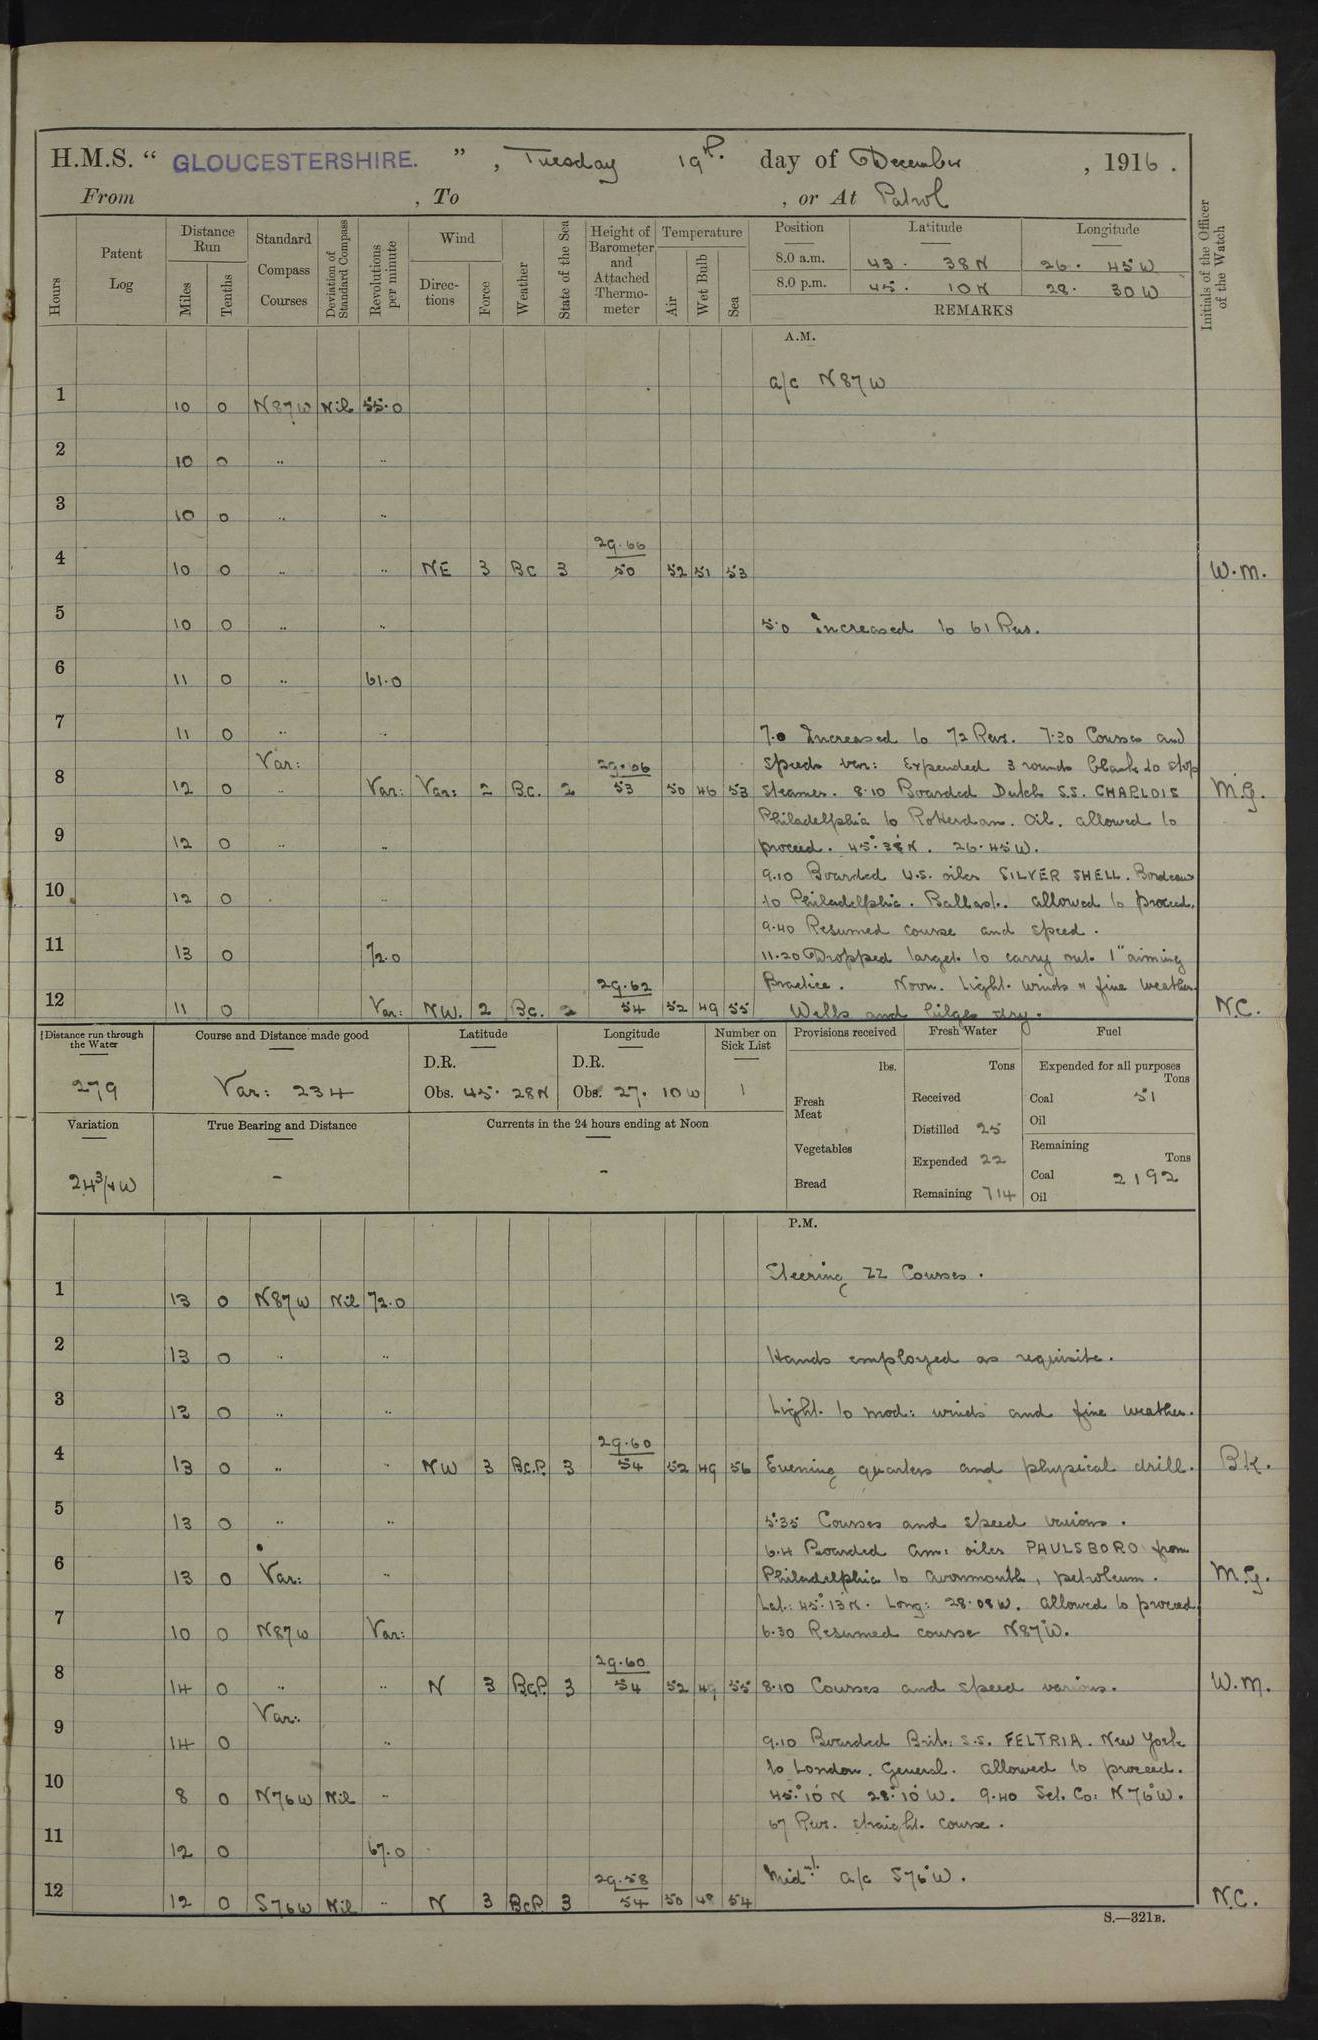 H.M.S. “ GLOUCESTERSHIRE. ” , Tuesday 19th. day of December , 1916 .
From , To , or At Patrol
Hours
Patent Log
Distance Run
Miles
Tenths
Standard Compass Courses
Deviation of Standard Compass
Revolutions per minute
Wind
Direc-tions
Force
Weather
State of the Sea
Height of Barometer and Attached Thermo-meter
Temperature
Air
Wet Bulb
Sea
Position Latitude Longitude
8.0 a.m. 43 . 38 N 26 . 45 W
8.0 p.m. 45 . 10 N 28 . 30 W
REMARKS
Initials of the Officer of the Watch
A.M.
a/c N 87 W
1 10 0 N87W Nil 55.0
2 10 0 " "
3 10 0 " "
29.66
4 10 0 " " NE 3 BC 3 50 52 51 53 W.M.
5 10 0 " " 5.0 Increased to 61 Revs.
6 11 0 " 61.0
7 11 0 " " 7.0 Increased to 72 Revs. 7.30 Courses and
Var: 29.66 Speeds var: Expended 3 rounds blank to stop
8 12 0 " Var: Var: 2 B.C. 2 53 50 46 53 Steamer. 8.10 Boarded Dutch S.S. CHARLOIS M.G.
Philadelphia to Rotterdam. Oil. allowed to
9 12 0 " " proceed. 45° 38'N. 26.45W.
9.10 Boarded U.S. oiler SILVER SHELL. Bordeaux
10 12 0 " " to Philadelphia. Ballast. allowed to proceed.
9.40 Resumed course and speed.
11 13 0 72.0 11.20 Dropped target to carry out 1" aiming
29.62 Practice. Noon. Light winds & fine weather
12 11 0 Var: NW. 2 B.C. 2 54 52 49 55 Wells and bilges dry. N.C.
†Distance run through the Water
279
Course and Distance made good
Var: 234
Latitude
D.R.
Obs. 45. 28N
Longitude
D.R.
Obs. 27. 10W
Number on Sick List
1
Provisions received
lbs.
Fresh Meat
Vegetables
Bread
Fresh Water
Tons
Received
Distilled 25
Expended 22
Remaining 714
Fuel
Expended for all purposes
Tons
Coal 51
Oil
Remaining
Tons
Coal 2192
Oil
Variation
24 3/4 W
True Bearing and Distance
-
Currents in the 24 hours ending at Noon
-
P.M.
Steering ZZ Courses.
1 13 0 N87W Nil 72.0
2 13 0 " " Hands employed as requisite.
3 13 0 " " Light to mod: winds and fine weather.
29.60
4 13 0 " " NW 3 B.C.P. 3 54 52 49 56 Evening quarters and physical drill. B.K.
5 13 0 " " 5.35 Courses and speed various.
6.4 Boarded Am: oiler PAULSBORO from
6 13 0 Var: " Philadelphia to Avonmouth, petroleum. M.G.
Lat: 45° 13N. Long: 28.08W. allowed to proceed.
7 10 0 N87W Var: 6.30 Resumed course N87°W.
29.60
8 14 0 " " N 3 B.C.P. 3 54 52 49 55 8.10 Courses and speed various. W.M.
Var:
9 14 0 " 9.10 Boarded Brit: S.S. FELTRIA. New York
to London. General. allowed to proceed.
10 8 0 N76W Nil " 45° 10' N 28° 10' W. 9.40 Set. Co: N76°W.
67 Revs. straight course.
11 12 0 67.0
29.58 Midnt. a/c S76°W.
12 12 0 S76W Nil " N 3 BCP. 3 54 50 48 54 N.C.
S.—321B.